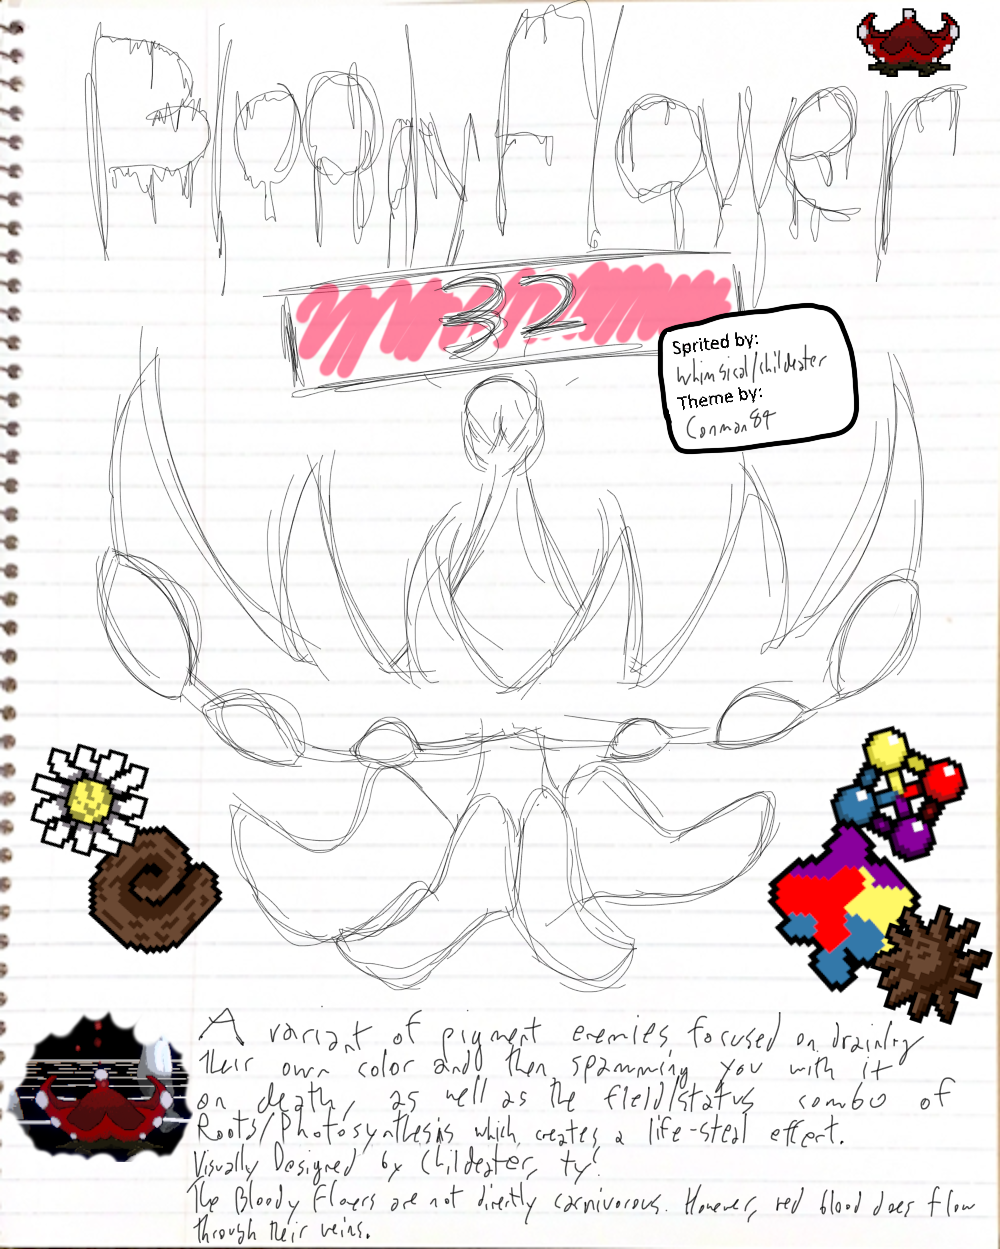 Bloody Flower
32
Sprited by:
Whimsical/childeater
Theme by:
Conman84
A variant of pigment enemies focused on draining
their own color and then spamming you with it
on death, as well as the field/status combo of
Roots/Photosynthesis which creates a life-steal effect.
Visually Designed by Childeater, ty!
The Bloody Flowers are not directly carnivorous. However, red blood does flow
through their veins.